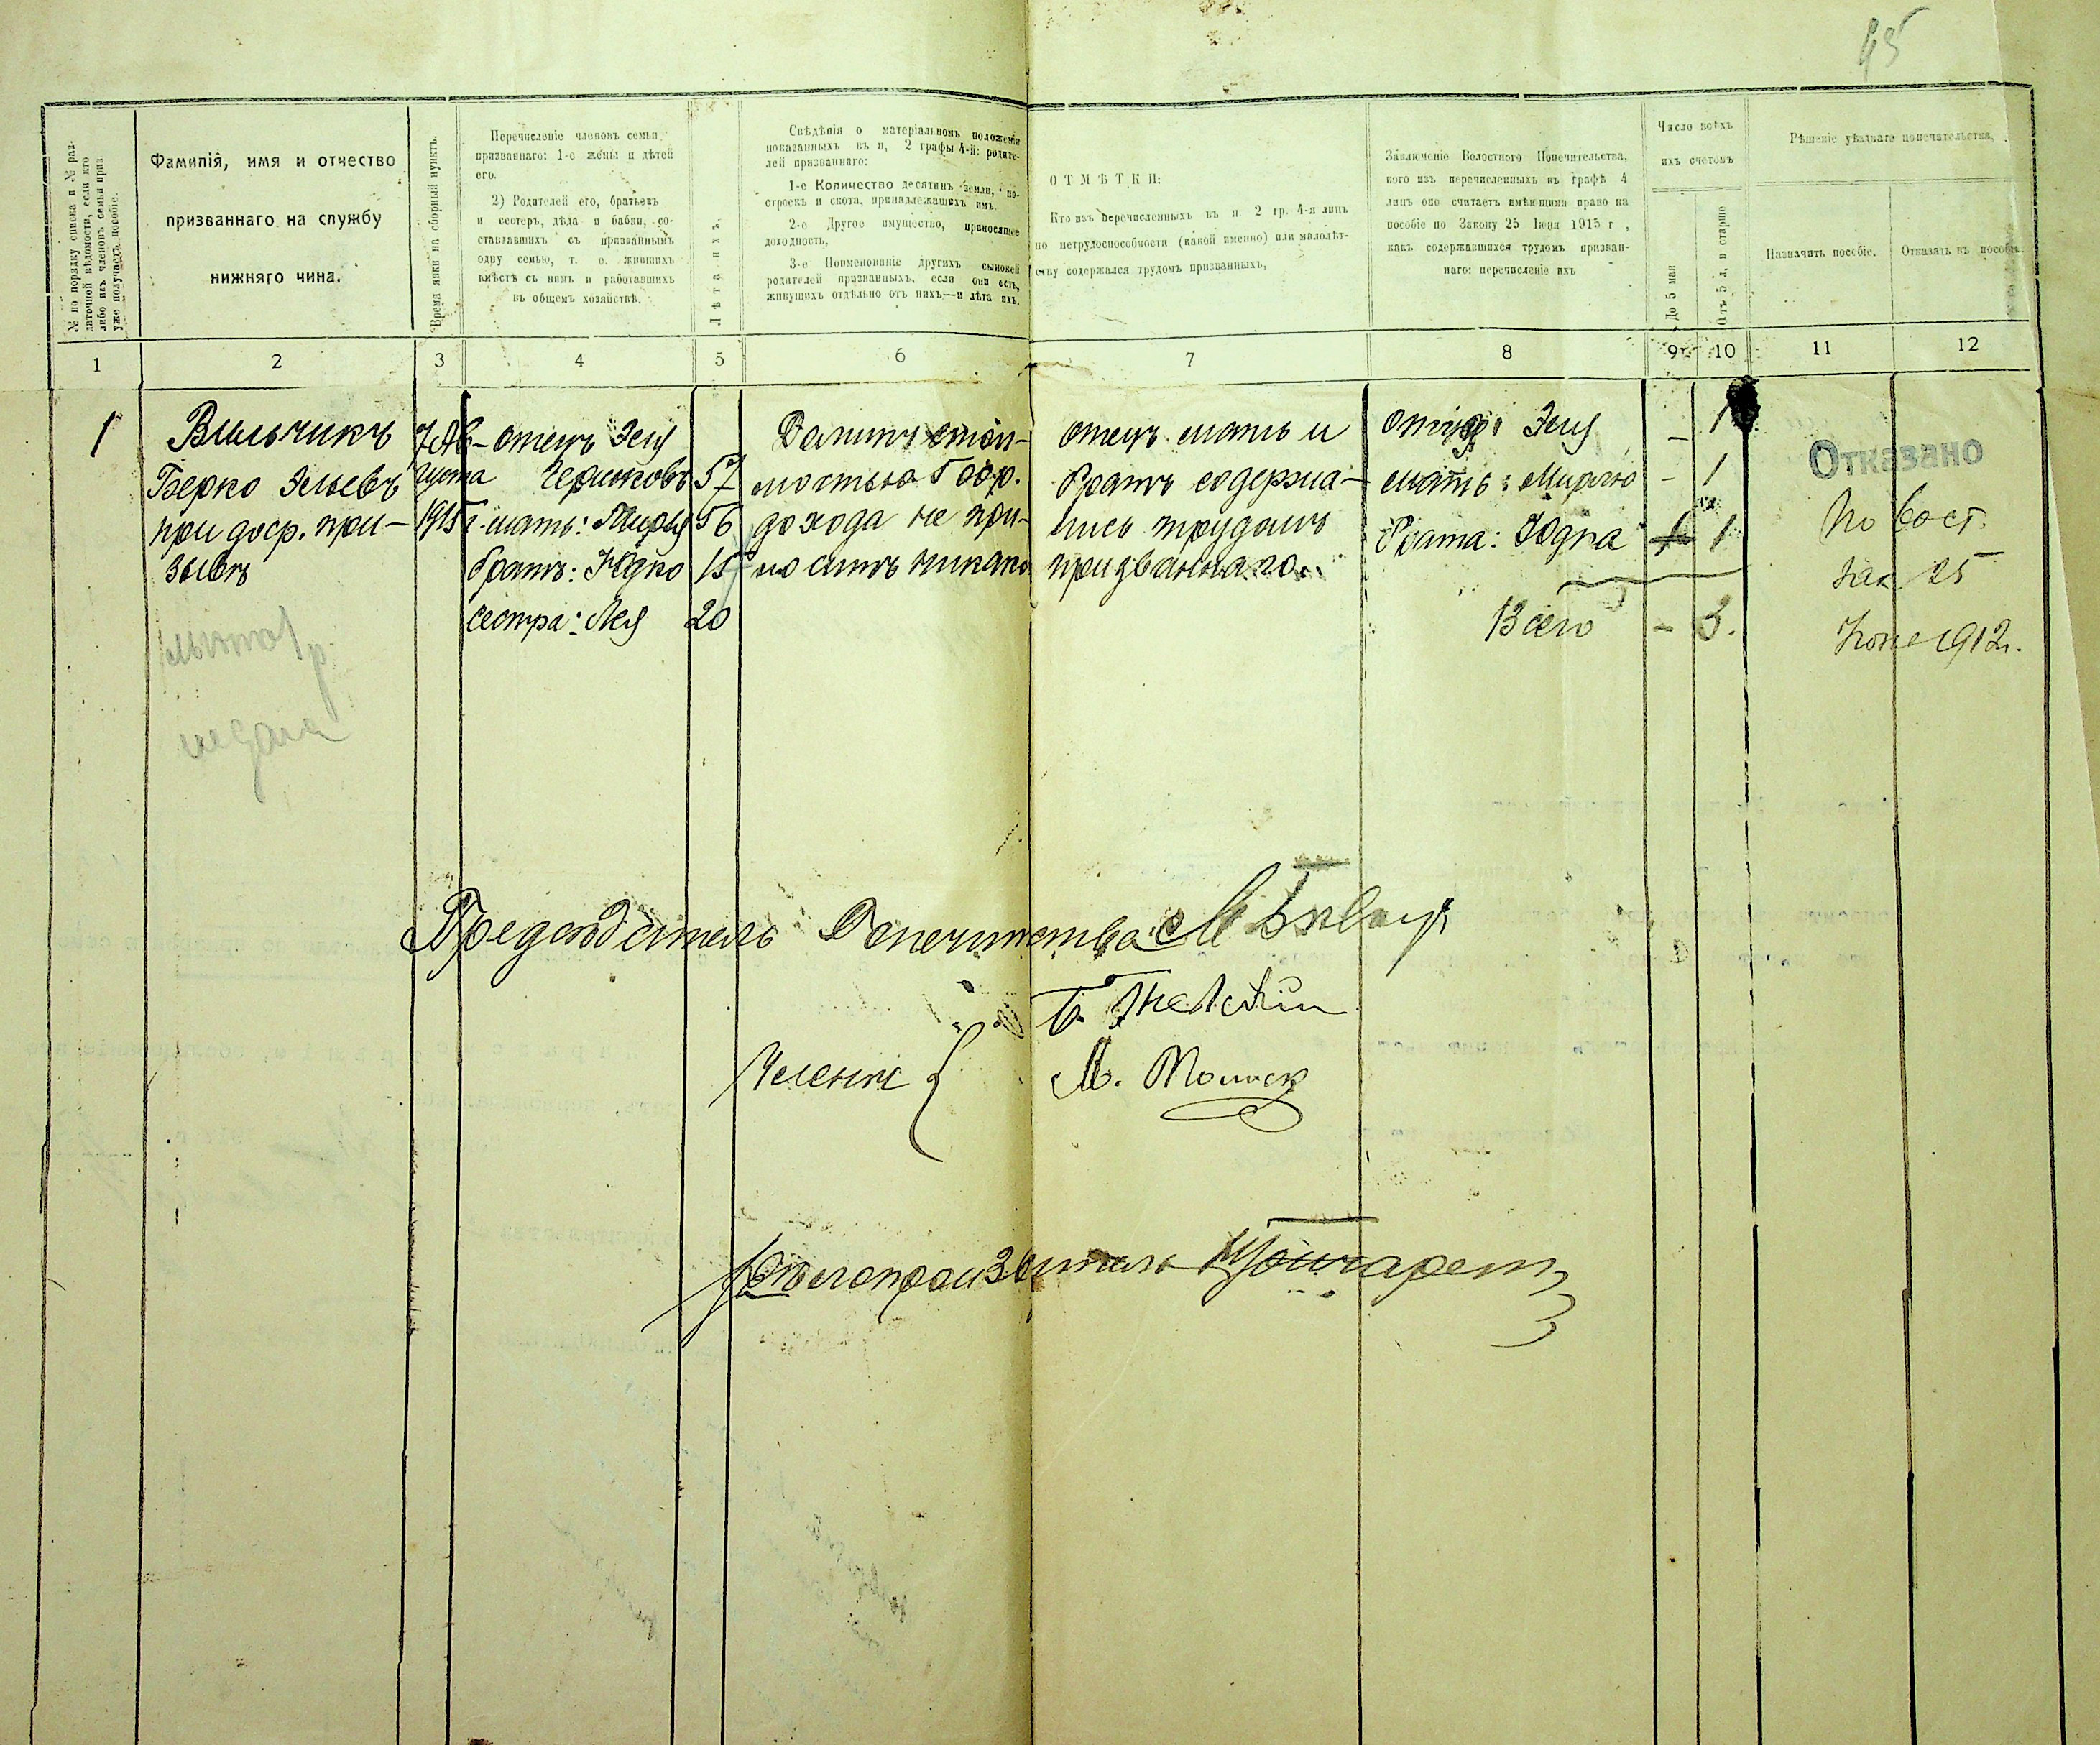 45
№ по порядку списка и № раз-
даточной вѣдомости, если кто
либо изъ членовъ семьи приз
уже получаетъ пособіе.
Фамилія, имя и отчество
призваннаго на службу
нижняго чина.
Время явки на сборный пунктъ.
Перечисленіе членовъ семьи
призваннаго: 1-о жены и дѣтей
его.
2) Родителей его, братьевъ
и сестеръ, дѣда и бабки, со-
ставлявшихъ съ призваннымъ
одну семью, т. е. жившихъ
вмѣстѣ съ нимъ и работавшихъ
въ общемъ хозяйствѣ.
Лѣта ихъ.
Свѣдѣнія о матеріальномъ положеніи
показанныхъ въ п, 2 графы 4-й: родите-
лей призваннаго:
1-е Количество десятинъ земли, по-
строекъ и скота, принадлежащихъ имъ.
2-е Другое имущество, приносящее
доходность,
3-е Поименованіе другихъ сыновей
родителей призванныхъ, если они есть,
живущихъ отдѣльно отъ нихъ—и лѣта ихъ.
ОТМѢТКИ:
Кто изъ перечисленныхъ въ п. 2 гр. 4-я лицъ
по нетрудоспособности (какой именно) или малолѣт-
ству содержался трудомъ призванныхъ,
Заключеніе Волостного Попечительства,
кого изъ перечисленныхъ въ графѣ 4
лицъ оно считаетъ имѣющими право на
пособіе по Закону 25 Іюня 1915 г,
какъ содержавшихся трудомъ призван-
наго: перечисленіе ихъ
Число всѣхъ
ихъ счетовъ
До 5 мая
Отъ 5 л, и старше
Рѣшеніе уѣзднаго попечательства,
Назначить пособіе.
Отказать въ пособіи.
1 2 3 4 5 6 7 8 9 10 11 12
1
Вильчикъ
Берко Эльевъ
при доср. при-
зывѣ
7 Ав-
густа
1915 г.
отецъ Эля
57
мать: Мирля 56
братъ: Юдко 15
сестра: Лея 20
Домикъ стои-
мостью
дохода не при-
носитъ никако
отецъ мать и
братъ содержа-
лись трудомъ
призваннаго.
отцу: Эля - 1
мать: Мирлю - 1
брата: Юдка 1
Всего - 3.
Отказано
По
зак 25
1912.
Предсѣдатель Попечитства
Члены {
Дѣлопроизвитель